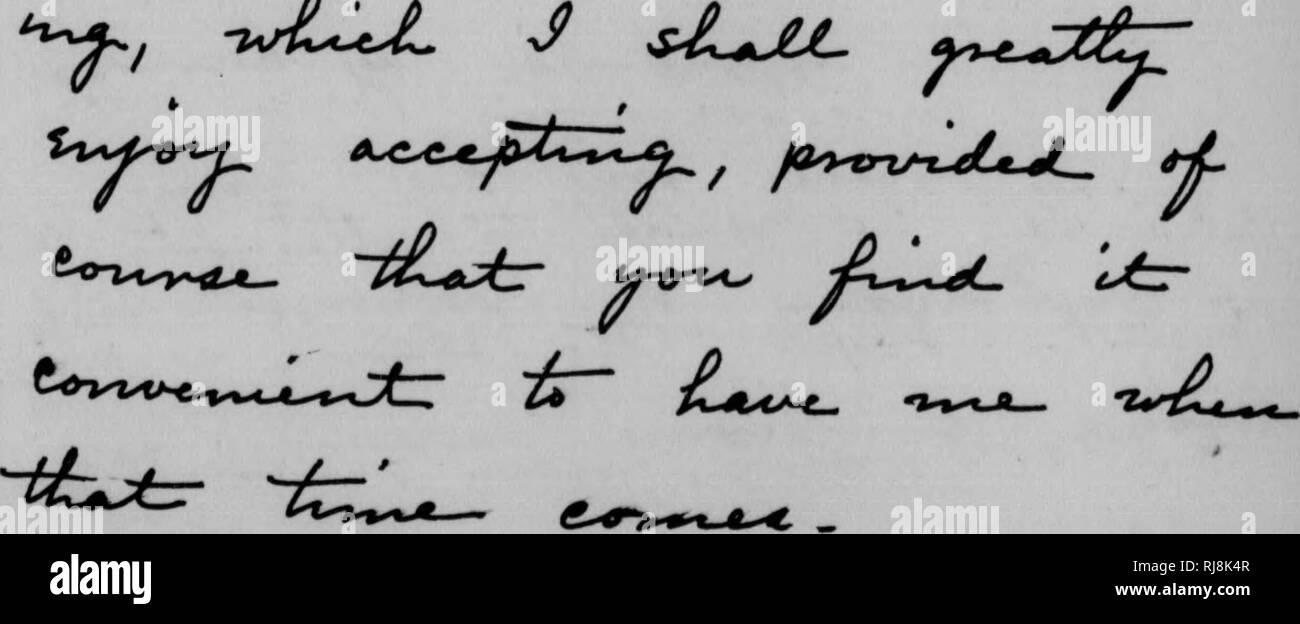 ng, which I shall greatly
enjoy accepting, provided of
course that you find it
convenient to have me when
that time comes.
alamy
Image ID: RJ8K4R
www.alamy.com